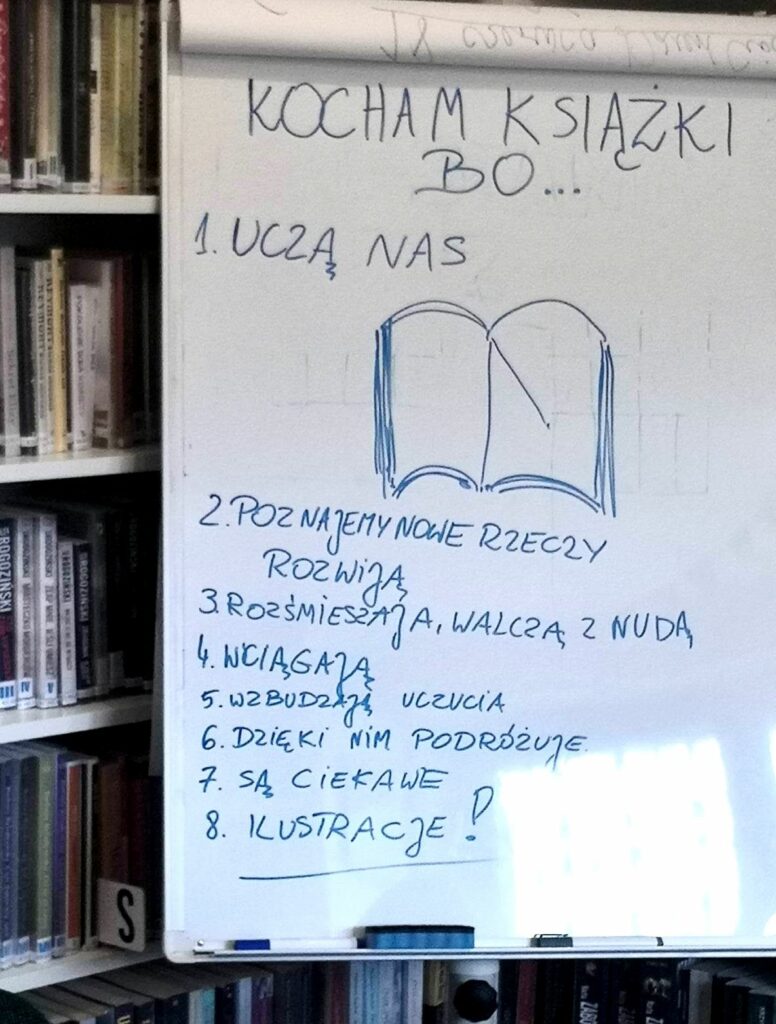 18 czerwca
KOCHAM KSIĄŻKI
BO...
1. UCZĄ NAS
2. POZNAJEMY NOWE RZECZY
ROZWIJĄ
3. ROZŚMIESZAJĄ, WALCZĄ Z NUDĄ
4. WCIĄGAJĄ
5. WZBUDZAJĄ UCZUCIA
6. DZIĘKI NIM PODRÓŻUJE
7. SĄ CIEKAWE
8. ILUSTRACJE!
S
ROGOZIŃSKI